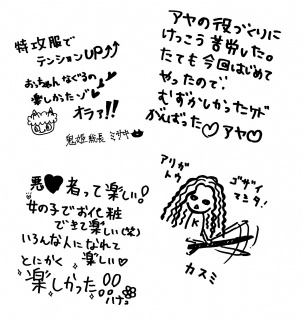 特攻服で
テンションUP↑↑
おっちゃんなぐるの
楽しかったゾ
オラァ!!
鬼姫総長 ミサキ
アヤの役づくりに
けっこう苦労した。
たても今回はじめて
やったので
むずかしかったケド
がんばった♡アヤ♡
悪♥者って楽しい!
女の子でお化粧
できて楽しい(笑)
いろんな人になれて
とにかく 楽しい♡
楽しかった!!
ハナコ
アリガ
トウ
ゴザイ
マシタ!
K
カスミ